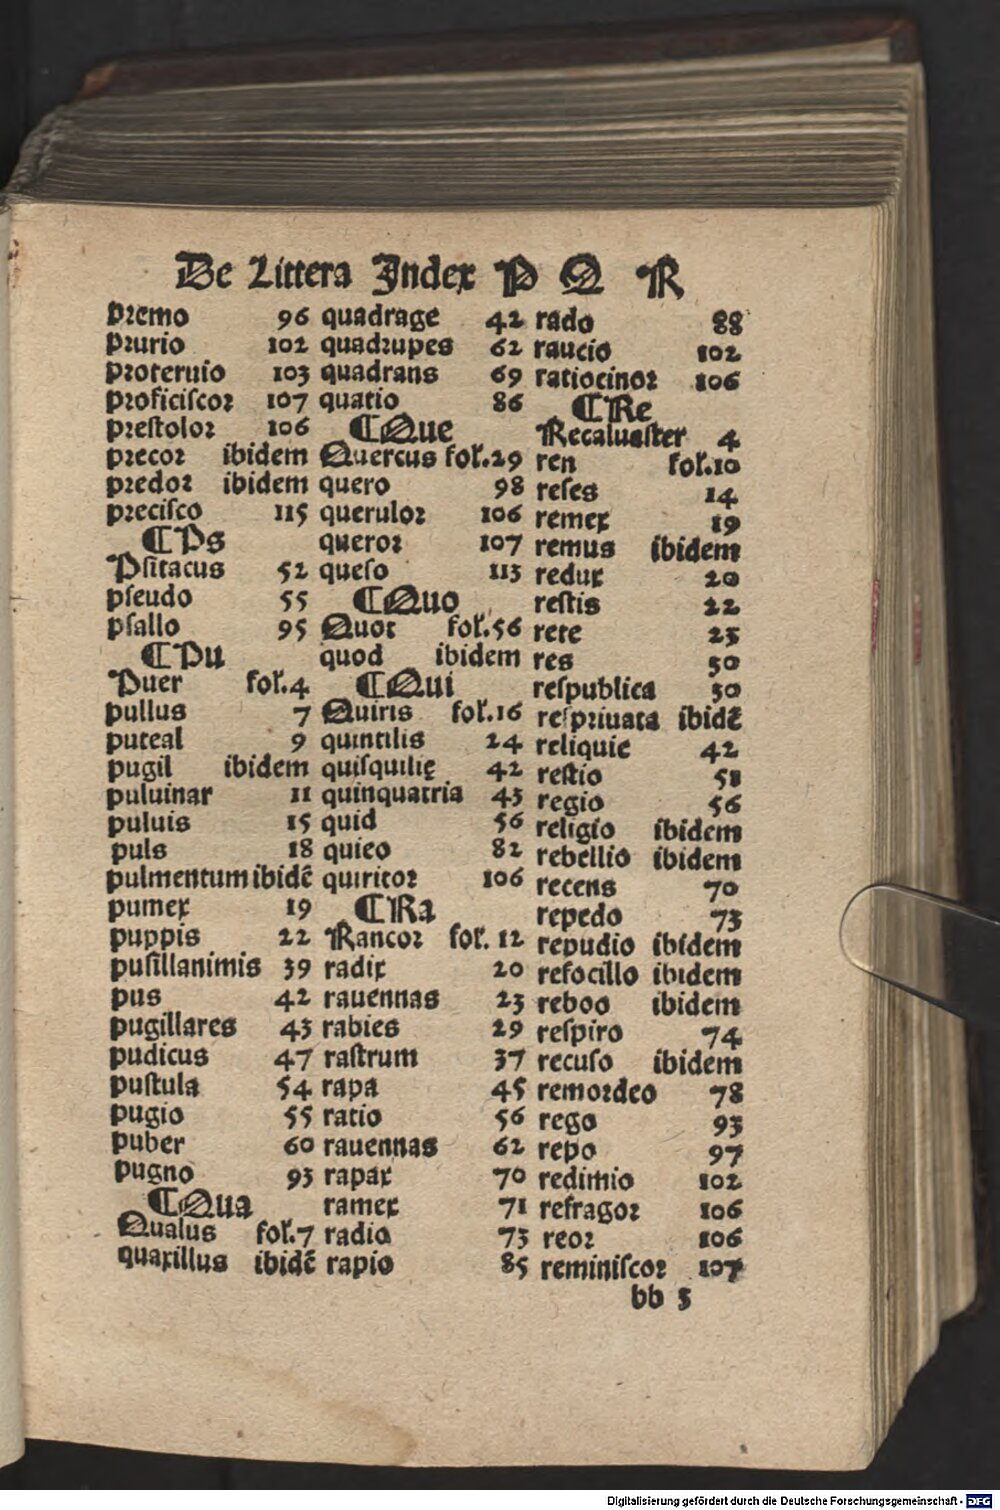 De Littera Index P Q R
premo 96
prurio 102
proteruio 103
proficiſcor 107
preſtolor 106
precor ibidem
predor ibidem
preciſco 115
¶Ps
Pſitacus 52
pſeudo 55
pſallo 95
¶Pu
Puer fol.4
pullus 7
puteal 9
pugil ibidem
puluinar 11
puluis 15
puls 18
pulmentum ibidē
pumex 19
puppis 22
puſillanimis 39
pus 42
pugillares 43
pudicus 47
puſtula 54
pugio 55
puber 60
pugno 93
¶Qua
Qualus fol.7
quaxillus ibidē
quadrage 42
quadrupes 62
quadrans 69
quatio 86
¶Que
Quercus fol.29
quero 98
querulor 106
queror 107
queſo 113
¶Quo
Quot fol.56
quod ibidem
¶Qui
Quiris fol.16
quintilis 24
quiſquilię 42
quinquatria 43
quid 56
quieo 82
quiritor 106
¶Ra
Rancor fol. 12
radix 20
rauennas 23
rabies 29
raſtrum 37
rapa 45
ratio 56
rauennas 62
rapax 70
ramex 71
radio 73
rapio 85
rado 88
raucio 102
ratiocinor 106
¶Re
Recaluaſter 4
ren fol.10
reſes 14
remex 19
remus ibidem
redux 20
reſtis 22
rete 23
res 30
reſpublica 30
reſpriuata ibidē
reliquie 42
reſtio 51
regio 56
religio ibidem
rebellio ibidem
recens 70
repedo 73
repudio ibidem
refocillo ibidem
reboo ibidem
reſpiro 74
recuſo ibidem
remordeo 78
rego 93
repo 97
redimio 102
refragor 106
reor 106
reminiſcor 107
bb 3
Digitalisierung gefördert durch die Deutsche Forschungsgemeinschaft - DFG